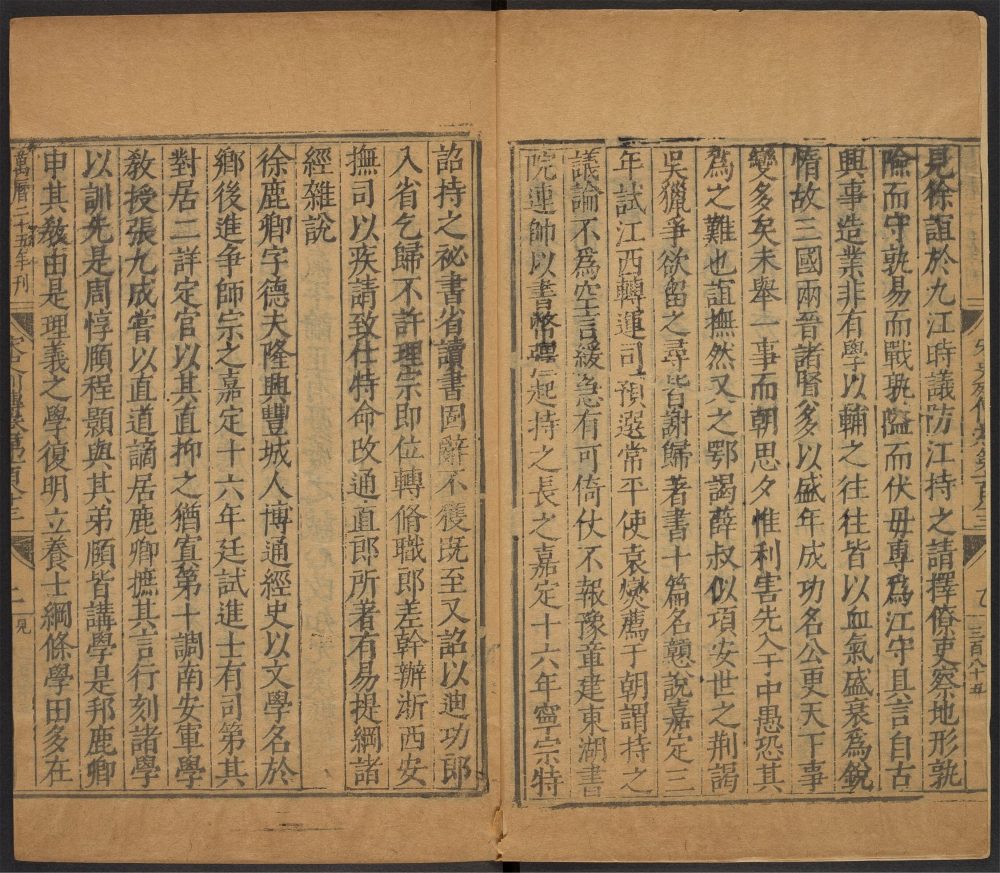 見徐誼於九江時議防江持之請擇僚吏察地形孰
險而守孰易而戰孰隘而伏毋專爲江守具言自古
興事造業非有學以輔之往往皆以血氣盛衰爲銳
惰故三國兩晉諸賢多以盛年成功名公更天下事
變多矣未舉一事而朝思夕惟利害先入于中愚恐其
爲之難也誼撫然又之鄂謁薛叔似項安世之荆謁
吳獵爭欲留之尋皆謝歸著書十篇名戇說嘉定三
年試江西轉運司預選常平使袁燮薦于朝謂持之
議論不爲空言緩急有可倚仗不報豫章建東湖書
院連帥以書幣彊起持之長之嘉定十六年寧宗特
詔持之祕書省讀書固辭不獲旣至又詔以迪功郎
入省乞歸不許理宗即位轉脩職郎差幹辦浙西安
撫司以疾請致仕特命改通直郎所著有易提綱諸
經雜說
徐鹿卿字德夫隆興豐城人博通經史以文學名於
鄉後進爭師宗之嘉定十六年廷試進士有司第其
對居二詳定官以其直抑之猶寘第十調南安軍學
敎授張九成嘗以直道謫居鹿卿摭其言行刻諸學
以訓先是周惇頤程顥與其弟頤皆講學是邦鹿卿
申其敎由是理義之學復明立養士綱條學田多在
萬曆二十五年刊